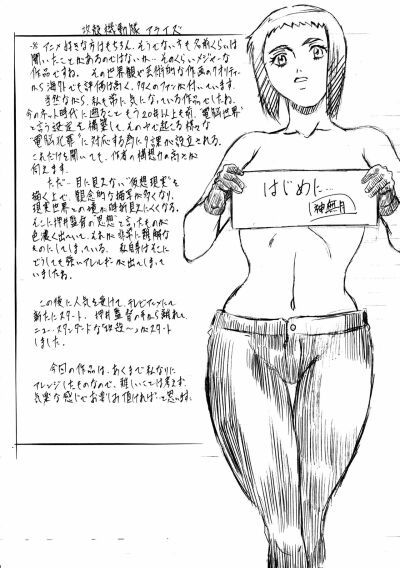 攻殻機動隊 アライズ
※ アニメ好きな方はもちろん、そうでない方も名前くらいは
聞いたことがあるのではないか…そのくらいメジャーな
作品ですね。その世界観や芸術的な作画のクオリティー
から海外でも評価は高く、多くのファンが付いています。
当然ながら、私も前に気になっている作品でしたね。
今のネット時代に遡ることもう20年以上も前、"電脳世界"
と言う設定を構築して、その中で起こる様々な
"電脳犯罪"に対応する為に9課が設立される。
これだけを聞いても、作者の構想力の高さが
伺えます。
ただ…目に見えない"仮想現実"を
描く上で、観念的な描写が多くなり、
現実世界との境が時折見えにくくなる。
そこに押井監督の"思想"と言ったものが
色濃く出ていて、それが非常に難解な
ものにしてしまっている。私自身はそこに
どうしても強いアレルギーが出てしまって
いましたね。
この後に人気を受けて、テレビアニメにて
新たにスタート。押井監督の手から離れて、
ニュースタンダードな"攻殻〜"がスタート
しました。
今回の作品は、あくまで私なりに
アレンジしたものなので、難しいことは考えず、
気楽な感じでお楽しみ頂ければと思います。
はじめに…
神無月